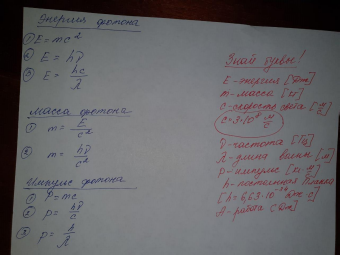 Энергия фотона
① E = mc²
② E = hν
③ E = hc/λ
Масса фотона
① m = E/c²
② m = hν/c²
Импульс фотона
① P = mc
② p = hν/c
③ p = h/λ
Знай буквы!
E - энергия [Дж]
m - масса [кг]
c - скорость света [м/с]
c = 3*10⁸ м/с
ν - частота [Гц]
λ - длина волны [м]
p - импульс [кг·м/с]
h - постоянная Планка
[h = 6,63·10⁻³⁴ Дж·с]
A - работа [Дж]